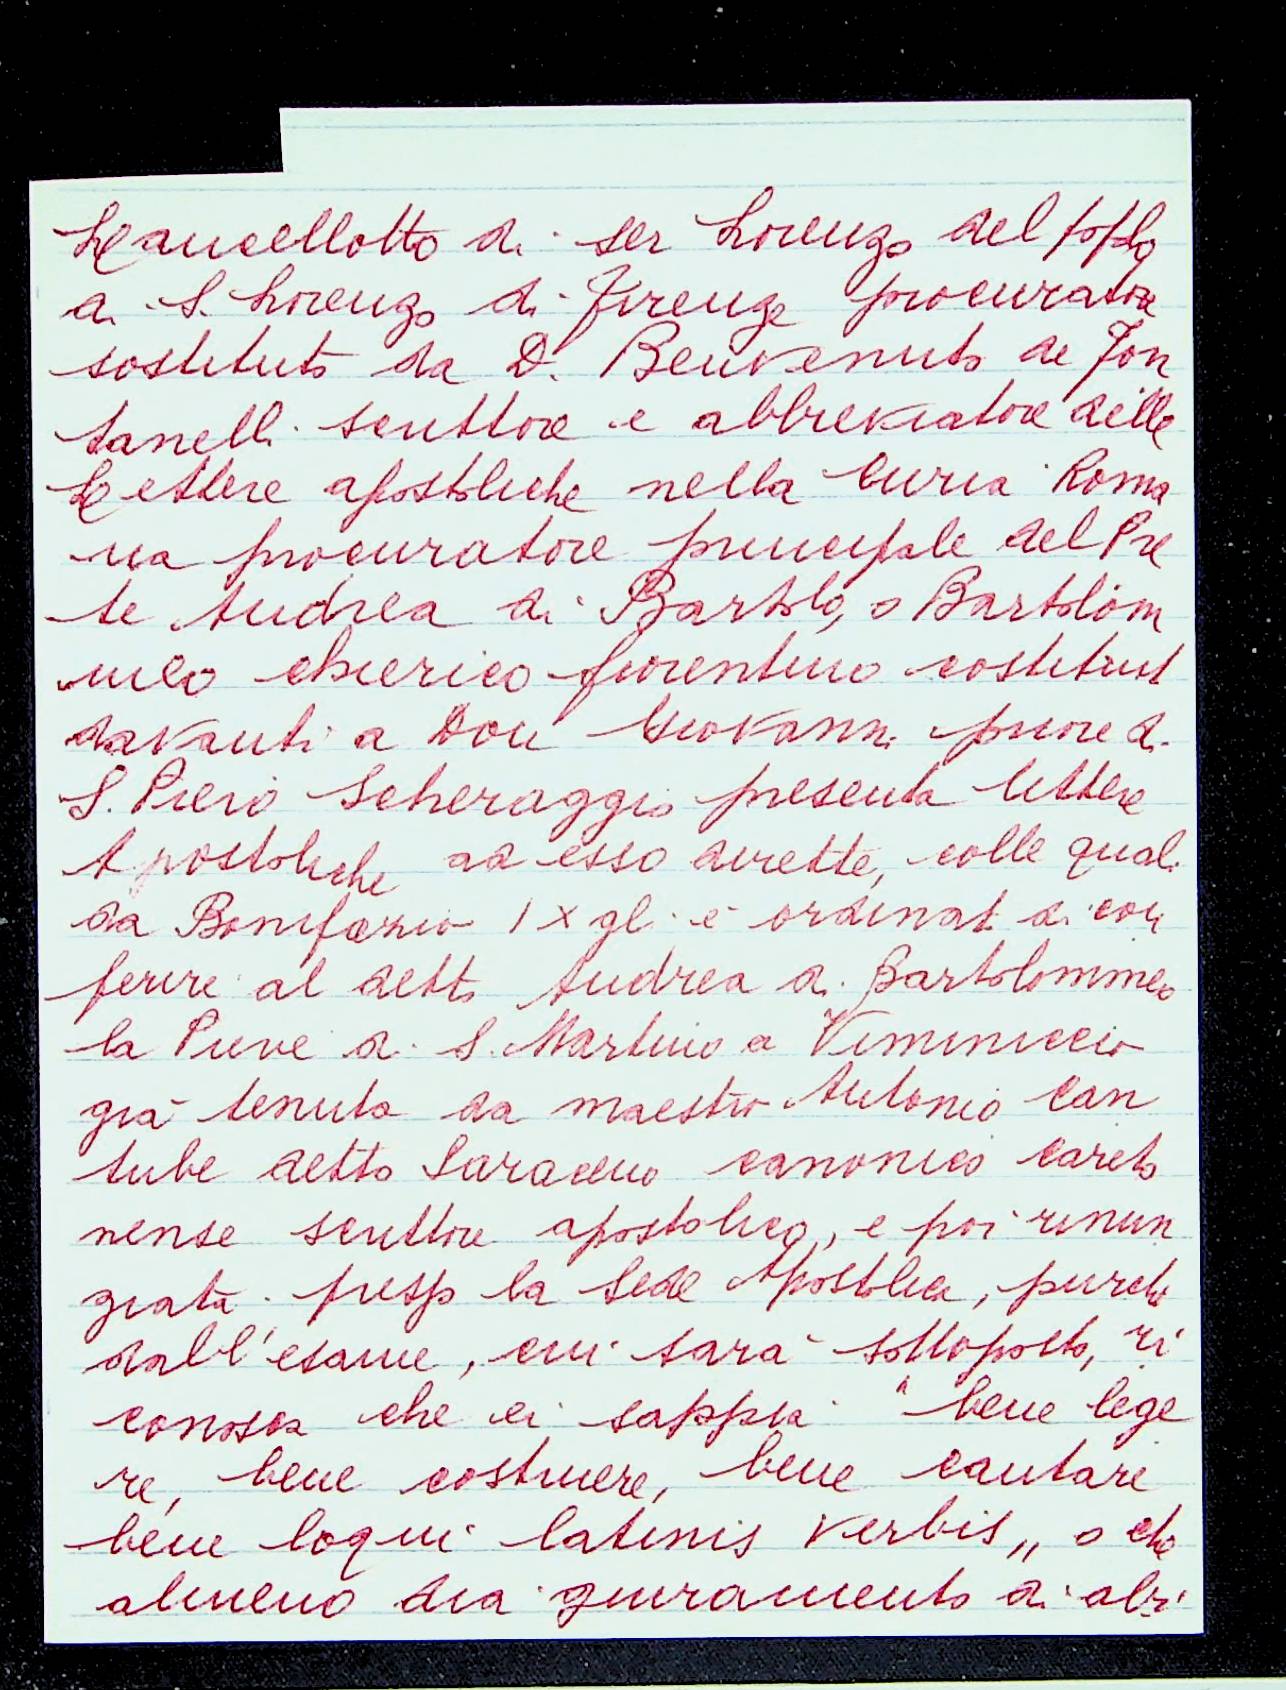 Lancellotto di ser Lorenzo del poplo
di S. Lorenzo di Firenze procuratore
sostituto da D. Benvenuto de Fon
tanelli scrittore e abbreviatore delle
Lettere apostoliche nella Curia Roma
na procuratore principale del Pre
te Andrea di Bartolo, o Bartolom
meo chierico fiorentino costituit
davanti a Don Giovanni priore di
S. Piero Scheraggio presenta lettere
Apostoliche ad esso dirette, colle quali
da Bonifazio IX gli è ordinat di con
ferire al detto Andrea di Bartolommeo
la Pieve di S. Martino a Viminiccio
già tenuta da maestro Antonio Can
tube detto Saraceno canonico Careto
nense scrittore apostolico, e poi rinun
ziata presso la Sede Apostolica, purchè
dall'esame, cui sarà sottoposto, ri
conosca che ei sappia "bene lege
re, bene costruere, bene cantare
bene loqui latinis verbis,, o che
almeno dia giuramento di abi